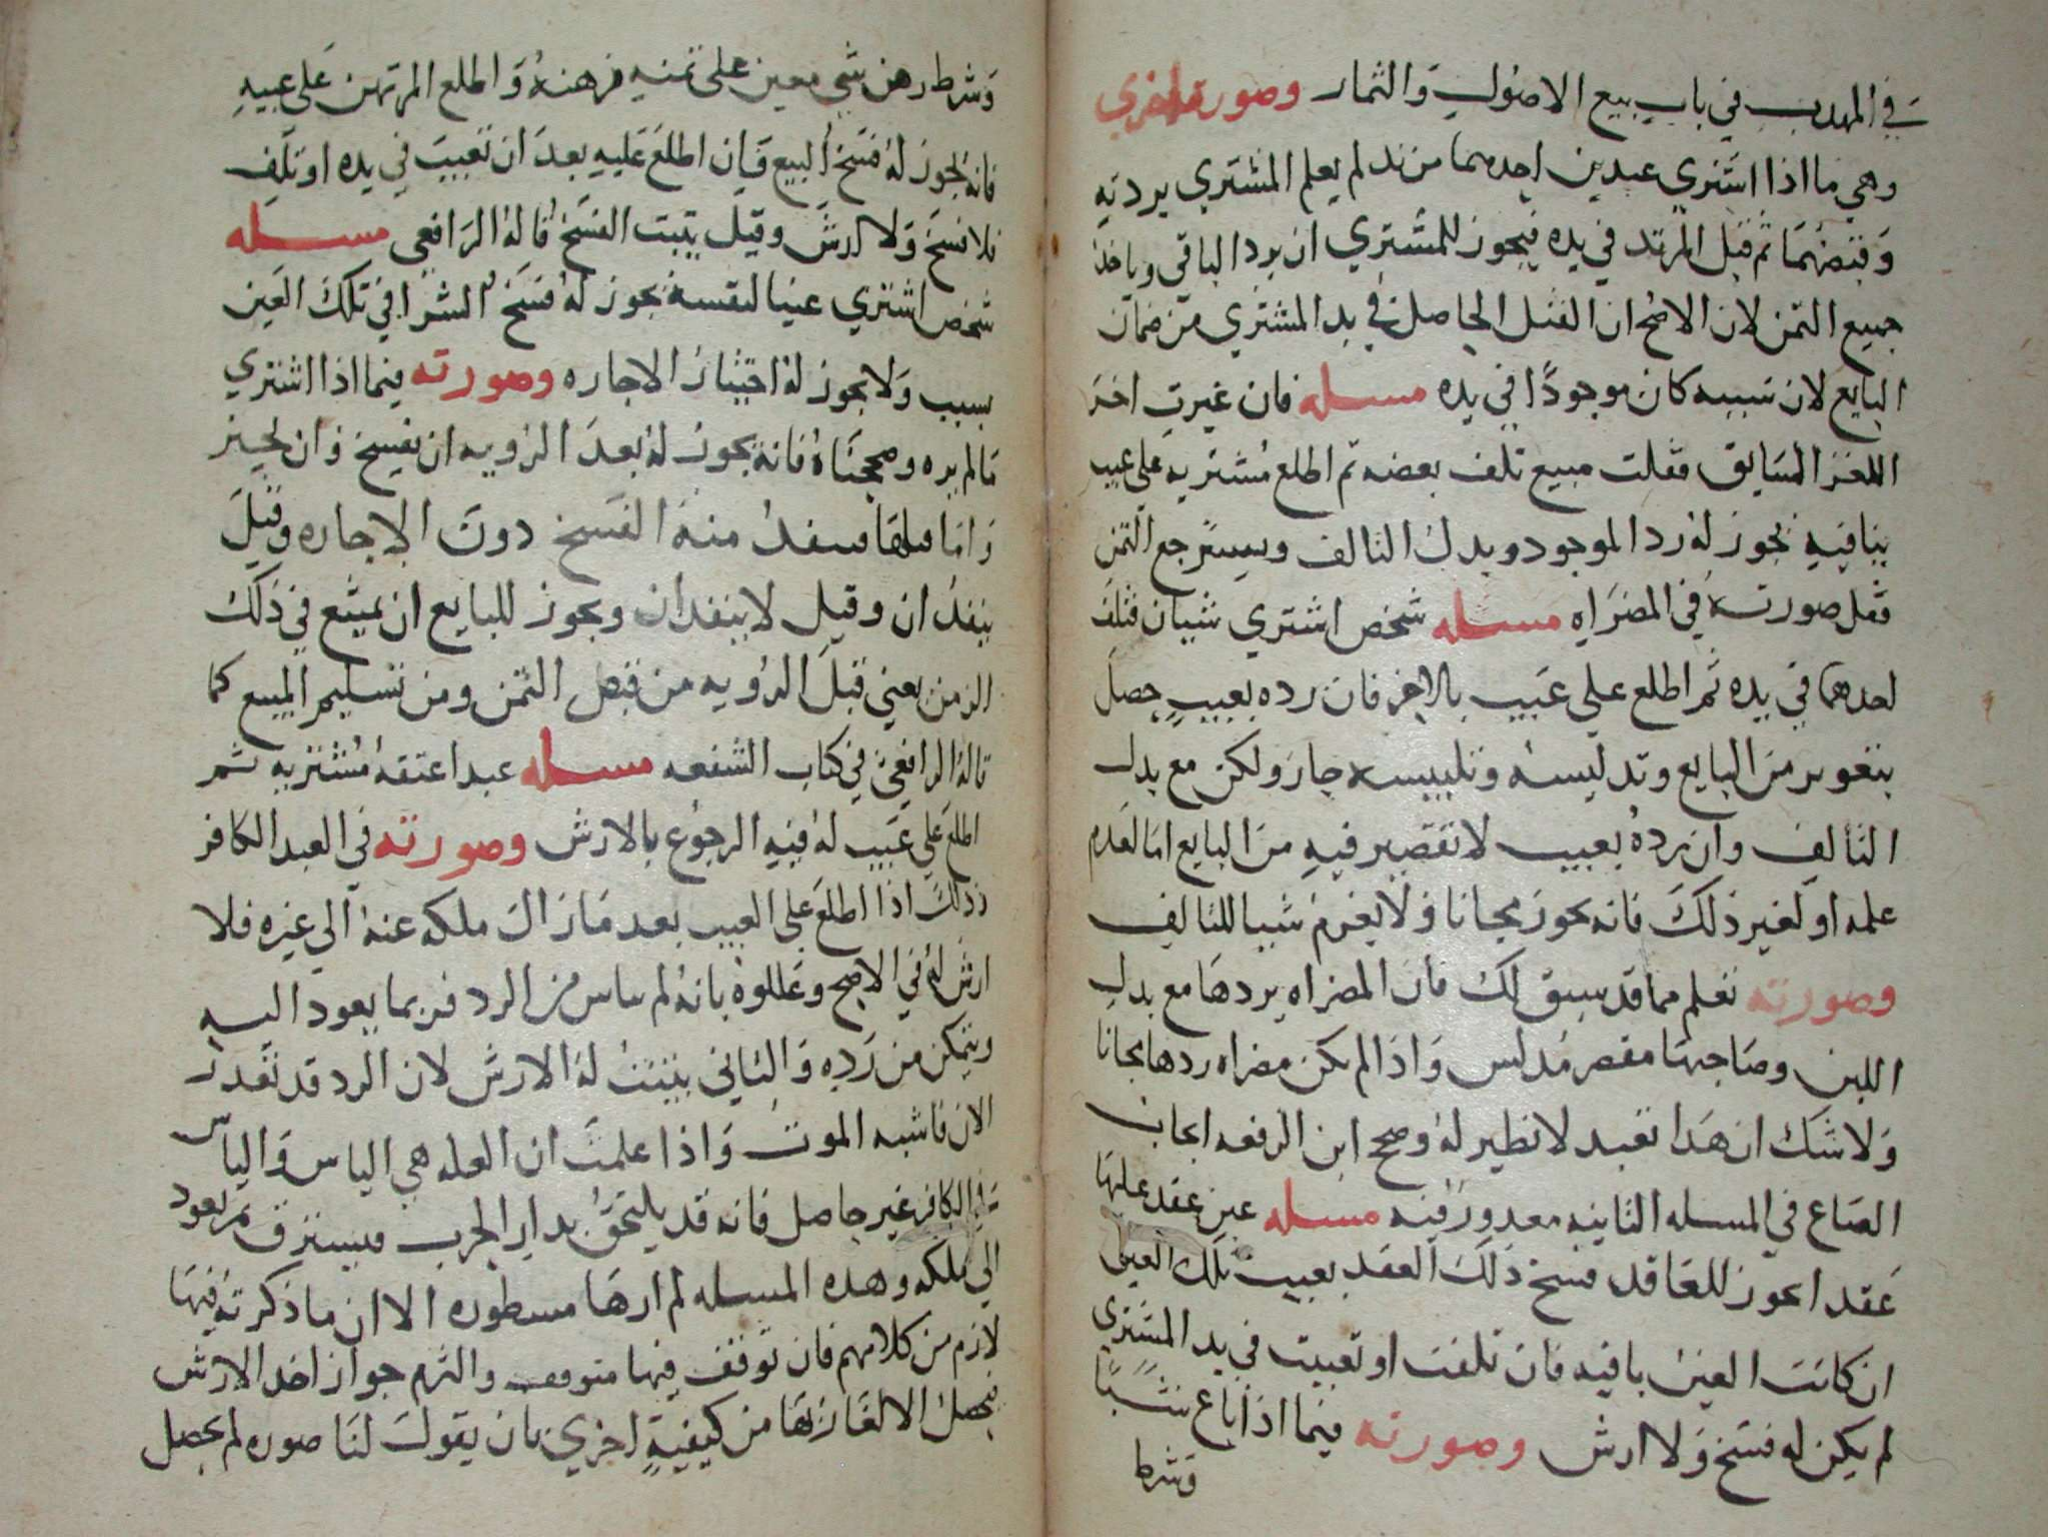 في المهذب في باب بيع الاصول والثمار وصورة اخري
وهي ما اذا اشتري عبدين احدهما مرتد لم يعلم المشتري بردته
وقبضهما ثم قتل المرتد في يده فيجوز للمشتري ان يرد الباقي وياخذ
جميع الثمن لان الاصح ان القتل الحاصل في يد المشتري من ضمان
البايع لان سببه كان موجودا في يده مسله فان غيرت اخر
اللغز السابق فقلت مبيع تلف بعضه ثم اطلع مشتريه علي عيب
بباقيه يجوز له رد الموجود وبدل التالف ويسترجع الثمن
فقل صورته في المصراه مسله شخص اشتري شيان فتلف
احدهما في يده ثم اطلع علي عيب بالاخر فان رده بعيب حصل
بتغرير من البايع وتدليسه وتلبيسه جاز ولكن مع بدل
التالف وان رده بعيب لا تقصير فيه من البايع اما لعدم
علمه او لغير ذلك فانه يجوز مجانا ولا يغرم شيا للتالف
وصورته تعلم مما قد سبق لك فان المصراه يردها مع بدل
اللبن وصاحبها مقصر مدلس واذا لم تكن مصراه ردها مجانا
ولا شك ان هذا تعبد لا نظير له وصحح ابن الرفعه ايجاب
الصاع في المسله الثانيه معدور فيه مسله عين عقد عليها
عقد ايجوز للعاقد فسخ ذلك العقد بعيب تلك العين
ان كانت العين باقيه فان تلفت او تعيبت في يد المشتري
لم يكن له فسخ ولا ارش وصورته فيما اذا باع شيا
وشرط
وشرط رهن شي معين علي ثمنه فرهنه واطلع المرتهن علي عيبه
فانه يجوز له فسخ البيع فان اطلع عليه بعد ان تعيب في يده او تلف
فلا فسخ ولا ارش وقيل يثبت الفسخ قاله الرافعي مسله
شخص اشتري عينا لنفسه يجوز له فسخ الشرا في تلك العين
بسبب ولا يجوز له اختيار الاجاره وصورته فيما اذا اشتري
ما لم يره وصححناه فانه يجوز له بعد الرويه ان يفسخ وان يجيز
واما قبلها فينفد منه الفسخ دون الاجاره وقيل
ينفدان وقيل لا ينفدان ويجوز للبايع ان يمتنع في ذلك
الزمن يعني قبل الرويه من قبض الثمن ومن تسليم المبيع كما
قاله الرافعي في كتاب الشفعه مسله عبد اعتقه مشتريه ثم
اطلع علي عيب له فيه الرجوع بالارش وصورته في العبد الكافر
وذلك اذا اطلع علي العيب بعد ما زال ملكه عنه الي غيره فلا
ارش له في الاصح وعللوه بانه لم ياس من الرد فربما يعود اليه
ويتمكن من رده والثاني يثبت له الارش لان الرد قد تعدر
الان فاشبه الموت واذا علمت ان العله هي الياس والياس
في الكافر غير حاصل فانه قد يلتحق بدار الحرب فيسترق ثم يعود
الي ملكه وهذه المسله لم ارها مسطوره الا ان ما ذكرته فيها
لازم من كلامهم فان توقف فيها متوقف والتزم جواز اخد الارش
فيجعل الالغاز بها من كيفية اخري بان يقول لنا صوره لم يحصل